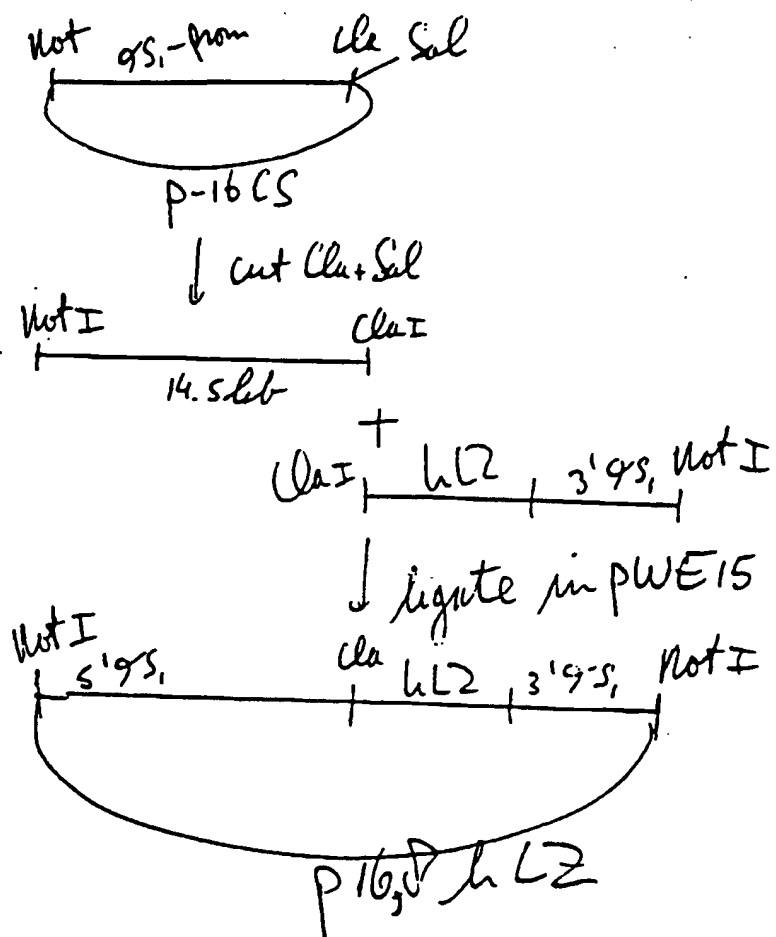 Not αS₁-prom Cla Sal
p-16CS
cut Cla+Sal
Not I Cla I
14.5kb
+
Cla I hLZ 3'αS₁ Not I
ligate in pWE15
Not I 5'αS₁ Cla hLZ 3'αS₁ Not I
p16,8hLZ